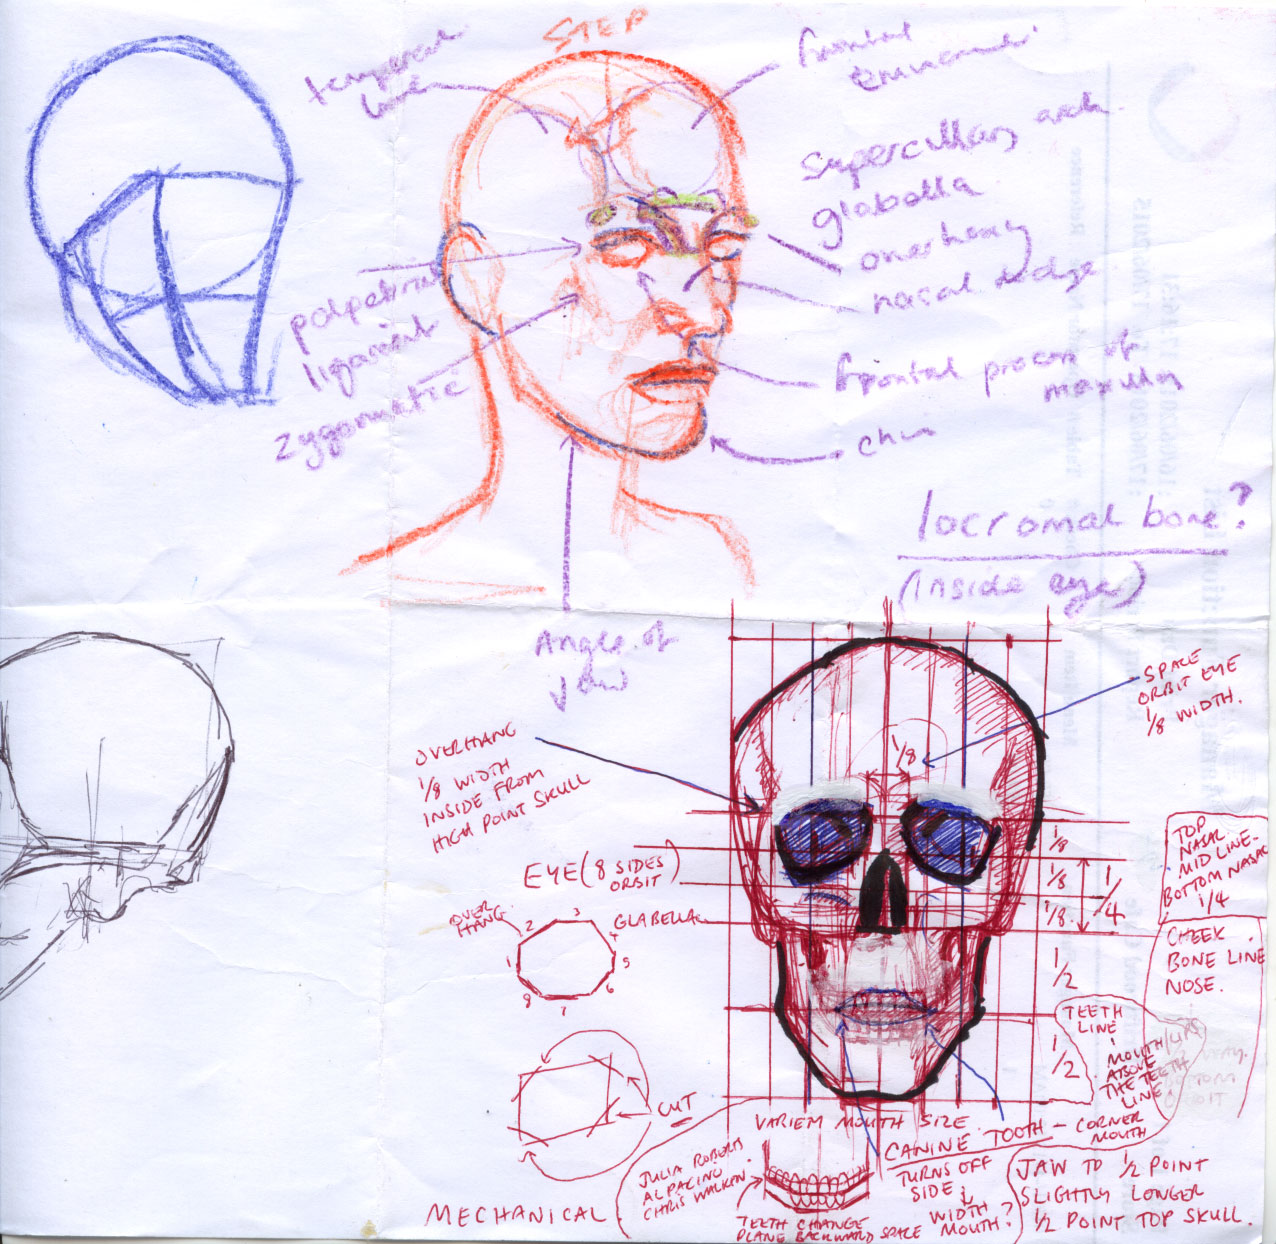 STEP
temporal
line
frontal
eminence
superciliary arch.
glabella
overhang
nasal ledge
palpebral
ligament
zygomatic
frontal process of
maxilla
chin
locromal bone?
(inside eye)
Angle of
jaw
SPACE
ORBIT EYE
1/8 WIDTH.
OVERHANG
1/8 WIDTH
INSIDE FROM
HIGH POINT SKULL
1/8
EYE (8 SIDES
ORBIT)
OVER
HANG
GLABELLA
1
2
3
4
5
6
7
8
1/8
1/8
1/8.
1/4
1/2
1/2
TOP
NASAL
MID LINE-
BOTTOM NASAL
1/4
CHEEK
BONE LINE
NOSE.
TEETH
LINE
MOUTH/LIPS
ABOVE
THE TEETH
LINE.
CUT
MECHANICAL
VARIEM MOUTH SIZE
CANINE TOOTH - CORNER
MOUTH
TURNS OFF
SIDE &
WIDTH
MOUTH?
JULIA ROBERTS
AL PACINO
CHRIS WALKEN
TEETH CHANGE
PLANE BACKWARD SPACE
JAW TO 1/2 POINT
SLIGHTLY LONGER
1/2 POINT TOP SKULL.